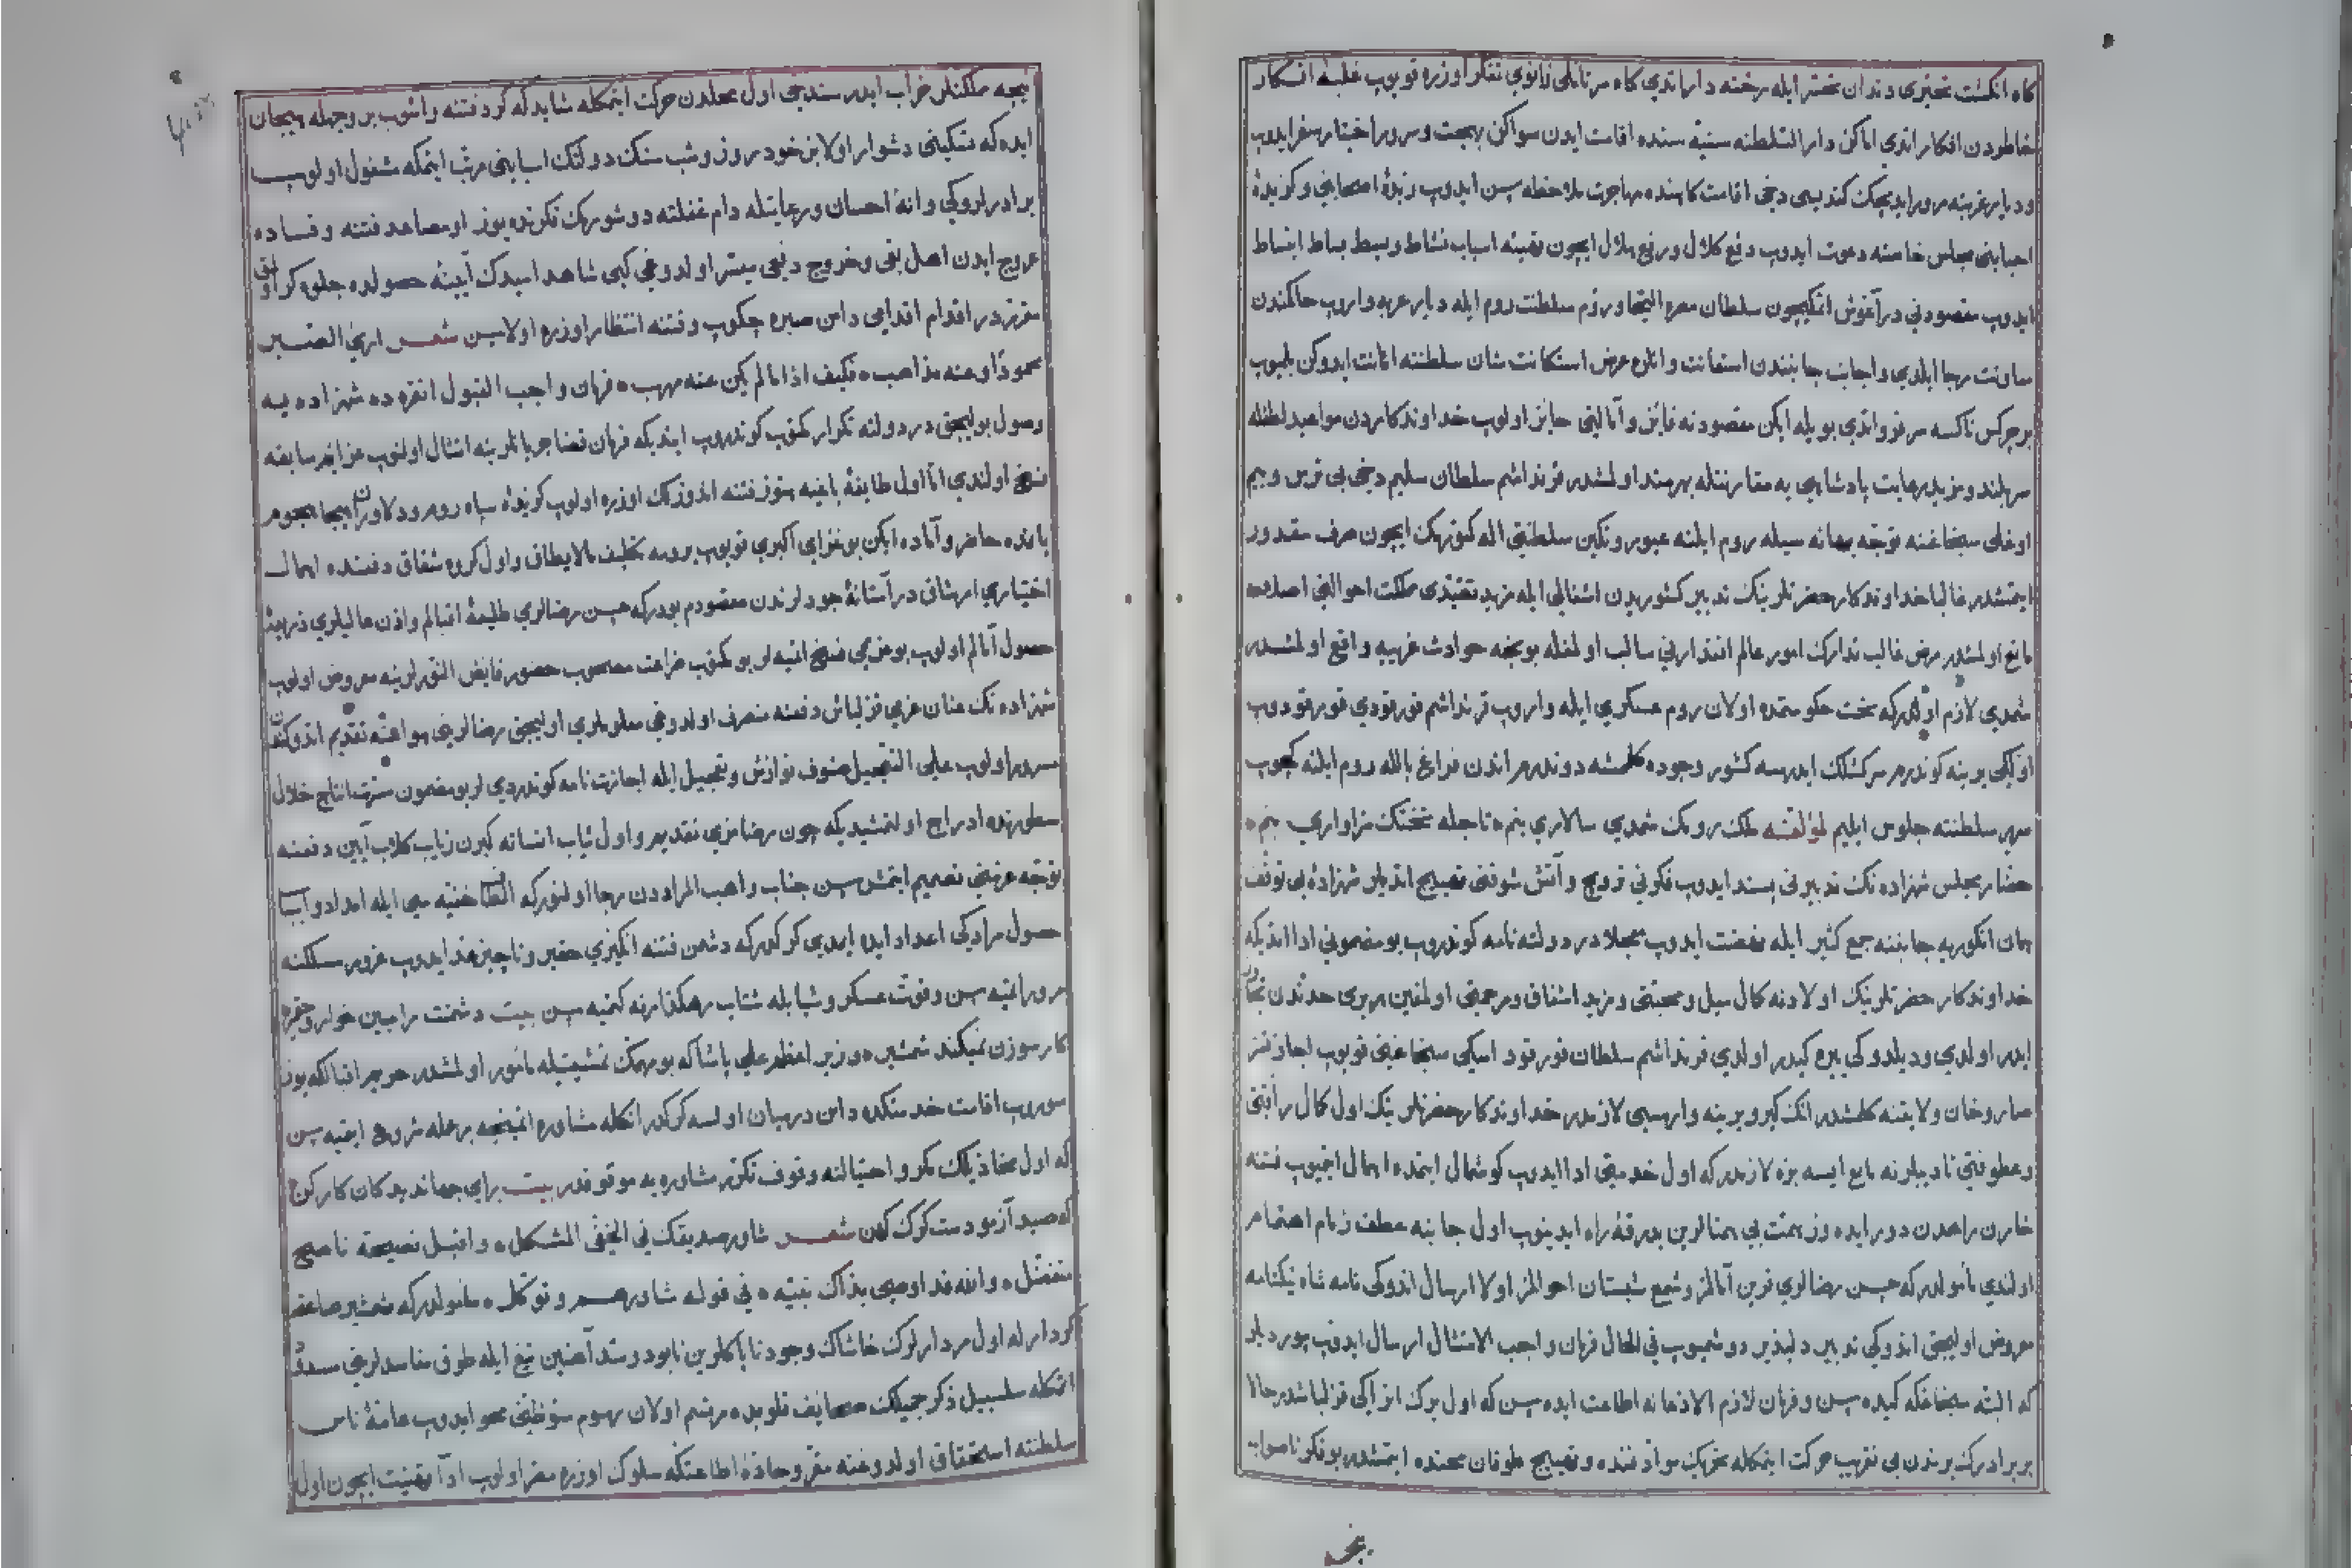 كاه انكشت تحيّرى دندان تحسّر ايله رخنه دار ايدى كاه سر تأملى زانوى تفكر اوزره قويوب غلبهٔ افكار
خاطردن افكار ايدى اماكن دار السّلطنه سنيّه سنده اقامت ايدن سواكن بهجت و سرور اختيار سفر ايدوب
و ديار غربته مرور ايديجك كنديسى دخى اقامت كاهنده مهاجرت ملاحظه سن ايدوب زبدهٔ اصحابنى و كزيدهٔ
احبابنى مجلس خاصنه دعوت ايدوب دفع كلال و رفع ملال ايچون تهيئه اسباب نشاط و بسط بساط انبساط
ايدوب مقصودنى در آغوش اتمكيچون سلطان مصره التجا و رزم سلطنت روم ايله ديار عربه واروب حاكمندن
معاونت رجا ايلدى و اجانب جانبندن استعانت و انلره عرض استكانت شان سلطنته اهانت ايدوكن بلميوب
بر چركس ناكسه سر فرو ايتدى بويله ايكن مقصودنه فايز و آمالنى حايز اولوب خداوندكاردن مواعيد لطفله
سربلند و مزيد رعايت پادشاهى يه مقارنتله بهرمند اولمشدر قرنداشم سلطان سليم دخى بى ترس و بيم
اوغلى سنجاغنه توجّه بهانه سيله روم ايلنه عبور و نكين سلطنتى اله كتورمك ايچون صرف مقدور
ايتمشدر غالبا خداوندكار حضرتلرينك تدبير كشوردن اشغالى ايله مزيد تقيّدى مملكت احوالنى اصلاحه
مانع اولمشدر مرض غالب تدارك امور عالم اقتدارنى سالب اولمغله بونجه حوادث غريبه واقع اولمشدر
شمدى لازم اولدركه تحت حكومتمده اولان روم عسكرى ايله واروب قرنداشم قورقودى قورقودوب
اولكى يرينه كوندرم سركشلك ايدرسه كشور وجوده كلمشه دوندرم اندن فراغ بالله روم ايلنه كچوب
سرير سلطنته جلوس ايليم لمؤلفه ملك رومك شمدى سالارى بنم تا جمله تختنك سزاوارى بنم
حضّار مجلس شهزاده نك تدبيرنى پسند ايدوب فكرنى ترويج و آتش شوقنى تهييج ايتديلر شهزادهٔ بى توقّف
همان انكوريه جانبنه جمع كثير ايله نهضت ايدوب معجّلا در دولته نامه كوندروب بو مضمونى ادا ايتديكه
خداوندكار حضرتلرينك اولادنه كمال ميل و محبتى و مزيد اشفاق و مرحمتى اولمغين هر برى حدّندن تجاوز
ايدر اولدى و ديلدوكى يره كيدر اولدى قرنداشم سلطان قورقود اسكى سنجاغنى قويوب اجازتسز
صاروخان ولايتنه كلمشدر انك كيرو يرينه وارمسى لازمدر خداوندكار حضرتلرينك اول كمال رأفتى
و عطوفتى تاديبلرنه مانع ايسه بزه لازمدركه اول خدمتى ادا ايدوب كوشمال ايتمده اهمال ايتميوب فتنه
خارن راهدن دور ايده وز همّت بى همتالرين بدرقهٔ راه ايدينوب اول جانبه عطف زمام اهتمام
اولندى مأمولدركه حسن رضالرى قرين آمالمز و شمع شبستان احوالمز اولا ارسال ايتدوكى نامه شاه نيكنامه
معروض اوليجق ايتدوكى تدبير دلپذير دوشميوب فى الحال فرمان واجب الامتثال ارسال ايدوب بيورديلر
كه البته سنجاغكه كيده سن و فرمان لازم الاذعانه اطاعت ايده سن كه اول برك اتراكى قزلباشدر حالا
بر برادرك يرندن بى تقريب حركت ايتمكله تحريك مواد فتنه و تهييج طوفان محنده ايتمشدر بو فكر ناصوابـ
نجه
نيجه مملكتلر خراب ايدر سن دخى اول محلدن حركت ايتمكله شايد كه كرد فتنه و اشوب بر وجهله هيجان
ايده كه تسكينى دشوار اولا بز خود روز و شب سنك دولتك اسبابنى مرتّب ايتمكه مشغول اولوب
برادرلروكى دانهٔ احسان و رعايتله دام غفلته دوشورمك فكرنده يوز او مصاعد فتنه و فساده
عروج ايدن اهل بغى و خروج دفعى ميسّر اولدوغى كبى شاهد اميدك آيينهٔ حصولده جلوه كر اولور
سر در اقدام اقدامى دامن صبره چكوب وقتنه انتظار اوزره اولاسن شعر ارى الصّبر
محموداً و عنه مذاهب فكيف اذا مالم يكن عنه مهرب فرمان واجب القبول انقره ده شهزاده يه
وصول بوليجق در دولته تكرار مكتوب كوندروب ايتديكه فرمان قضا جريانلرينه امتثال اولنوب عزايم سابقه
فسخ اولندى امّا اول طايفهٔ باغيه هنوز فتنه اندوزلك اوزره اولوب كزيدهٔ سپاه روم و دلاوران هيجا هجوم
يانمده حاضر و آماده ايكن بو غزاى اكبرى قويوب يرومه تكليف مالايطاق و اول كروه شقاق دفعنده اهمال
اختيارى ار مشاق در آستانهٔ جودلرندن مقصودم بودركه حسن رضالرى طليعهٔ اقبالم و اذن عاليلرى ذريعهٔ
حصول آمالم اولوب بو عزمى فسخ اتميه لر بو مكتوب ضراعت مصحوب حضور فايض النّورلرينه معروض اولوب
شهزاده نك عنان عزمى قزلباش دفعنه منصرف اولدوغى معلوملرى اوليجق رضالرينى هوا سنه تقديم ايتدوكندن
مسرور اولوب على التّعجيل صنوف نوازش و تبجيل ايله اجازت نامه كوندرديلر بو مضمون مسرّت انتاج خلال
سطورنده ادراج اولنمشيديكه چون رضامزى تقديم و اول ثياب انسانه كيرن ذياب كلاب آيين دفعنه
توجّه عزمنى تصميم ايتمش سن جناب واهب المراددن رجا اولنوركه الطاف خفيّه سى ايله امداد و اسباب
حصول مرادكى اعداد ايده ايدى كركدركه دشمن فتنه انكيزى حقير و ناچيز عدّ ايدوب غرور مسلكنه
مرور اتميه سن و قوّت عسكر و شبابله شتاب رهكذارنه كتميه سن بيت دشمنت را مبين خوار و حقير
كار سوزن نميكند شمشير وزير اعظم على پاشا كه بو مهمّك تمشيتيله مأمور اولمشدر حريم اقبالكه يوز
سوروب اقامت خدمتكده دامن در ميان اولسه كركدر انكله مشاوره اتمينجه بر عمله شروع ايتميه سن
كه اول مخاذيلك مكر و احتيالنه وقوف نكته مشاوره يه موقوفدر بيت براى جهانديدكان كار كن
كه صيد آزمودست كرك كهن شعر شاور صديقك فى الخفىّ المشكل و اقبل نصيحة ناصح
متفضّل والله قد اوصى بذاك نبيّه فى قوله شاورهم و توكّل مأمولدركه شمشير صاعقه
كردارله اول مردارلرك خاشاك وجود ناپاكلرين نابود و سدّ آهنين تيغ ايله طرق مفاسدلرينى مسدود
اتمكله سلسبيل ذكر جميلك صحايف قلوبده مرتسم اولان رسوم سؤ ظنّى محو ايدوب عامّهٔ ناس
سلطنته استحقاق اولدوغنه مقرّ و جادّهٔ اطاعتكه سلوك اوزره مصرّ اولوب ادآ تهنيت ايچون اول